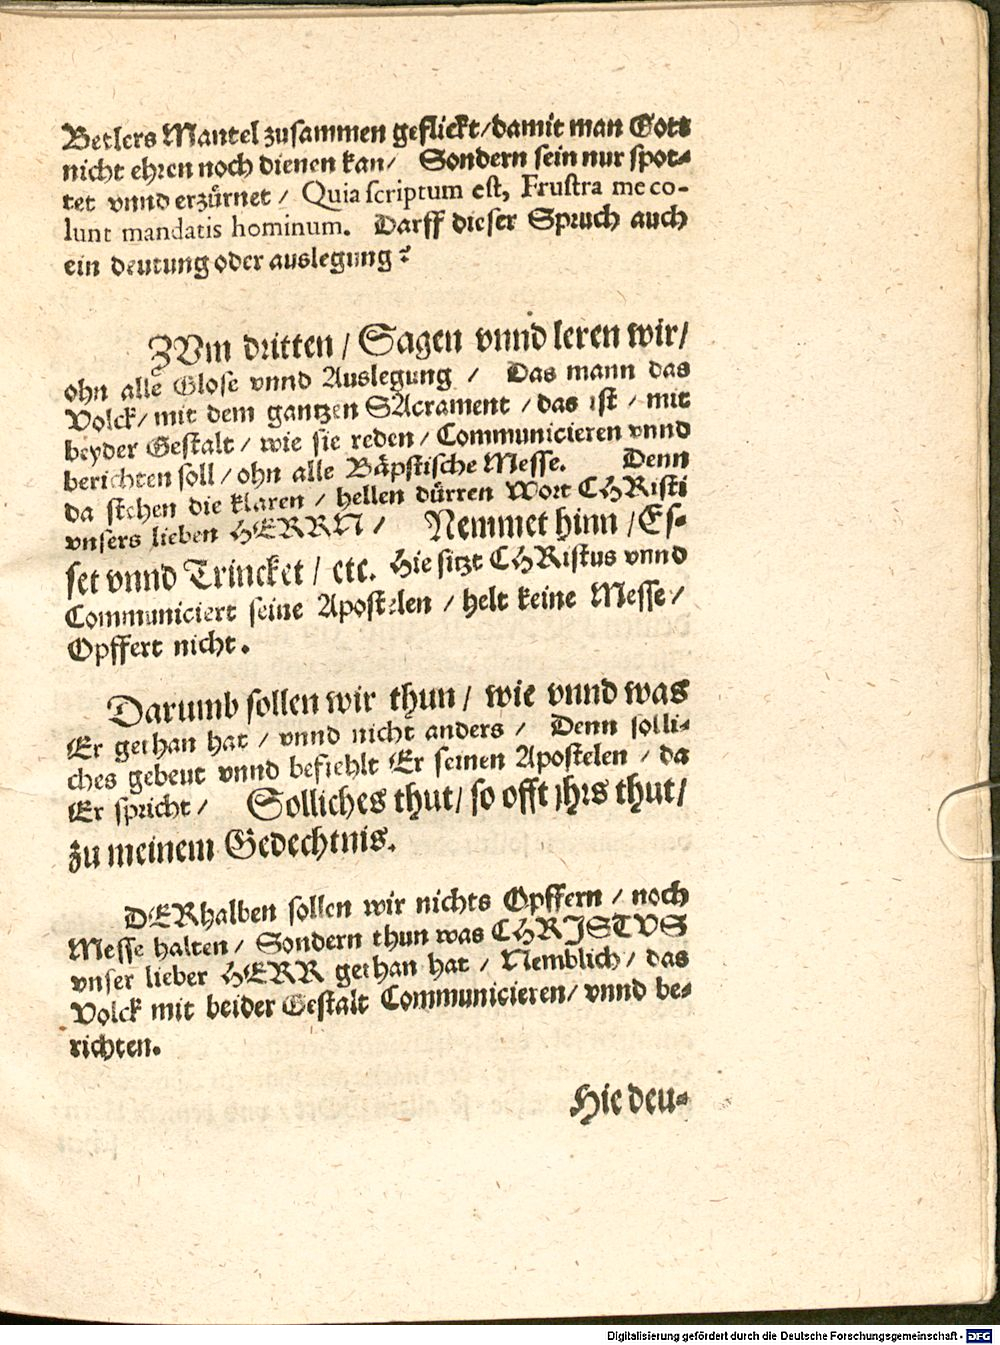 Betlers Mantel zusammen geflickt/damit man Gott
nicht ehren noch dienen kan/ Sondern sein nur spot⸗
tet vnnd erzürnet / Quia scriptum est, Frustra me co-
lunt mandatis hominum. Darff dieser Spruch auch
ein deutung oder auslegung?
ZVm dritten / Sagen vnnd leren wir/
ohn alle Glose vnnd Auslegung / Das mann das
Volck/ mit dem gantzen SAcrament / das ist / mit
beyder Gestalt / wie sie reden / Communicieren vnnd
berichten soll / ohn alle Bäpstische Messe. Denn
da stehen die klaren / hellen dürren Wort CHRisti
vnsers lieben HERRN / Nemmet hinn / Es⸗
set vnnd Trincket / etc. Hie sitzt CHRistus vnnd
Communiciert seine Apostelen / helt keine Messe /
Opffert nicht.
Darumb sollen wir thun / wie vnnd was
Er gethan hat / vnnd nicht anders / Denn solli⸗
ches gebeut vnnd befiehlt Er seinen Apostelen / da
Er spricht / Solliches thut / so offt jhrs thut /
zu meinem Gedechtnis.
DERhalben sollen wir nichts Opffern / noch
Messe halten / Sondern thun was CHRJSTVS
vnser lieber HERR gethan hat / Nemblich / das
Volck mit beider Gestalt Communicieren / vnnd be⸗
richten.
Hie deu⸗
Digitalisierung gefördert durch die Deutsche Forschungsgemeinschaft - DFG